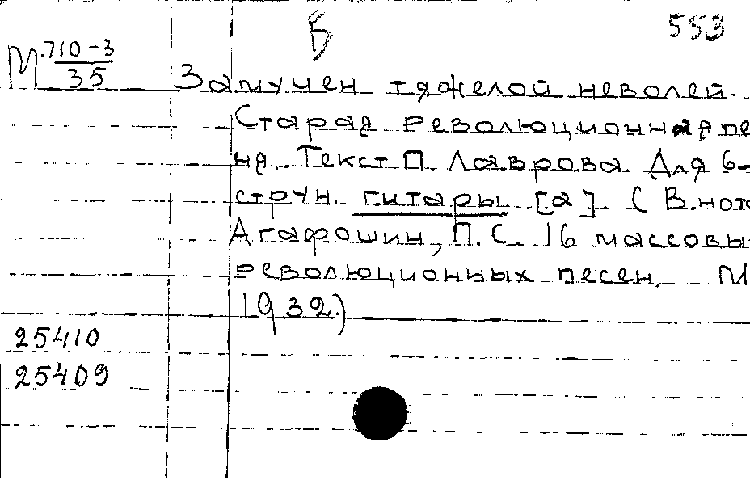 Б 553
М 710-3
35
Замучен тяжелой неволей.
Старая революционная пе
ня. Текст П. Лаврова. Для 6-
струн. гитары [a] (В нот
Агафошин, П.С. 16 массовы
революционных песен. М
1932)
25410
25409